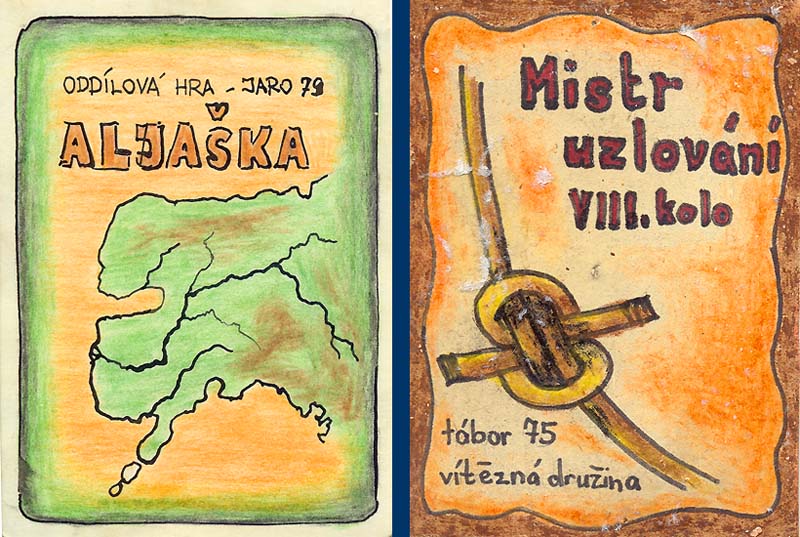 ODDÍLOVÁ HRA - JARO 79
ALJAŠKA
Mistr
uzlování
VIII. kolo
tábor 75
vítězná družina